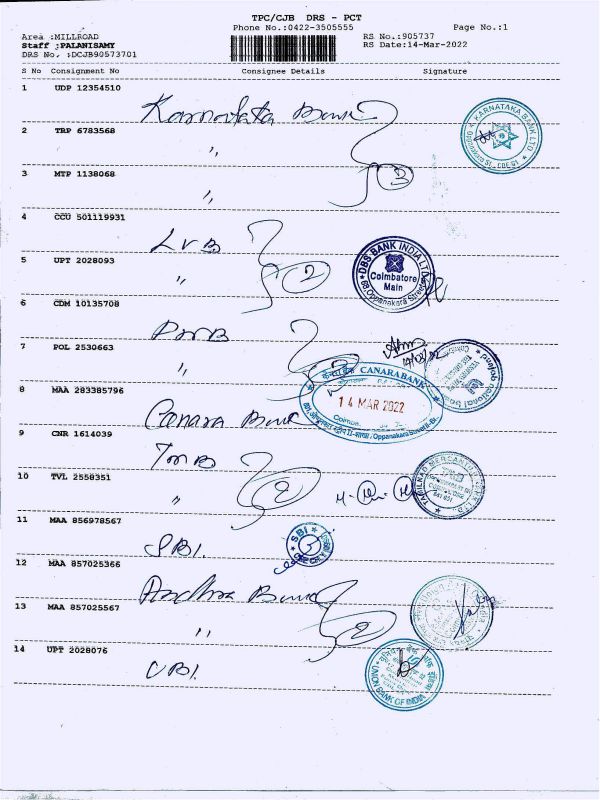 TPC/CJB DRS - PCT
Phone No.:0422-3505555 Page No.:1
Area :MILLROAD RS No.:905737
Staff ;PALANISAMY RS Date:14-Mar-2022
DRS No. :DCJB90573701
S No Consignment No Consignee Details Signature
1 UDP 12354510
Karnataka Bank
KARNATAKA BANK LTD
2 TRP 6783568
"
3 MTP 1138068
3
"
4 CCU 501119931
LVB
5 UPT 2028093
DBS BANK INDIA LTD
Coimbatore
Main
Oppanakara Street
"
2
6 CDM 10135708
PNB
7 POL 2530663
"
2
8 MAA 283385796
CANARA BANK
14 MAR 2022
Oppanakara Street
Canara Bank
9 CNR 1614039
TMB
10 TVL 2558351
"
2
TAMILNAD MERCANTILE
11 MAA 856978567
SBI
SBI.
12 MAA 857025366
Andhra Bank
13 MAA 857025567
"
2
14 UPT 2028076
UBI.
UNION BANK OF INDIA